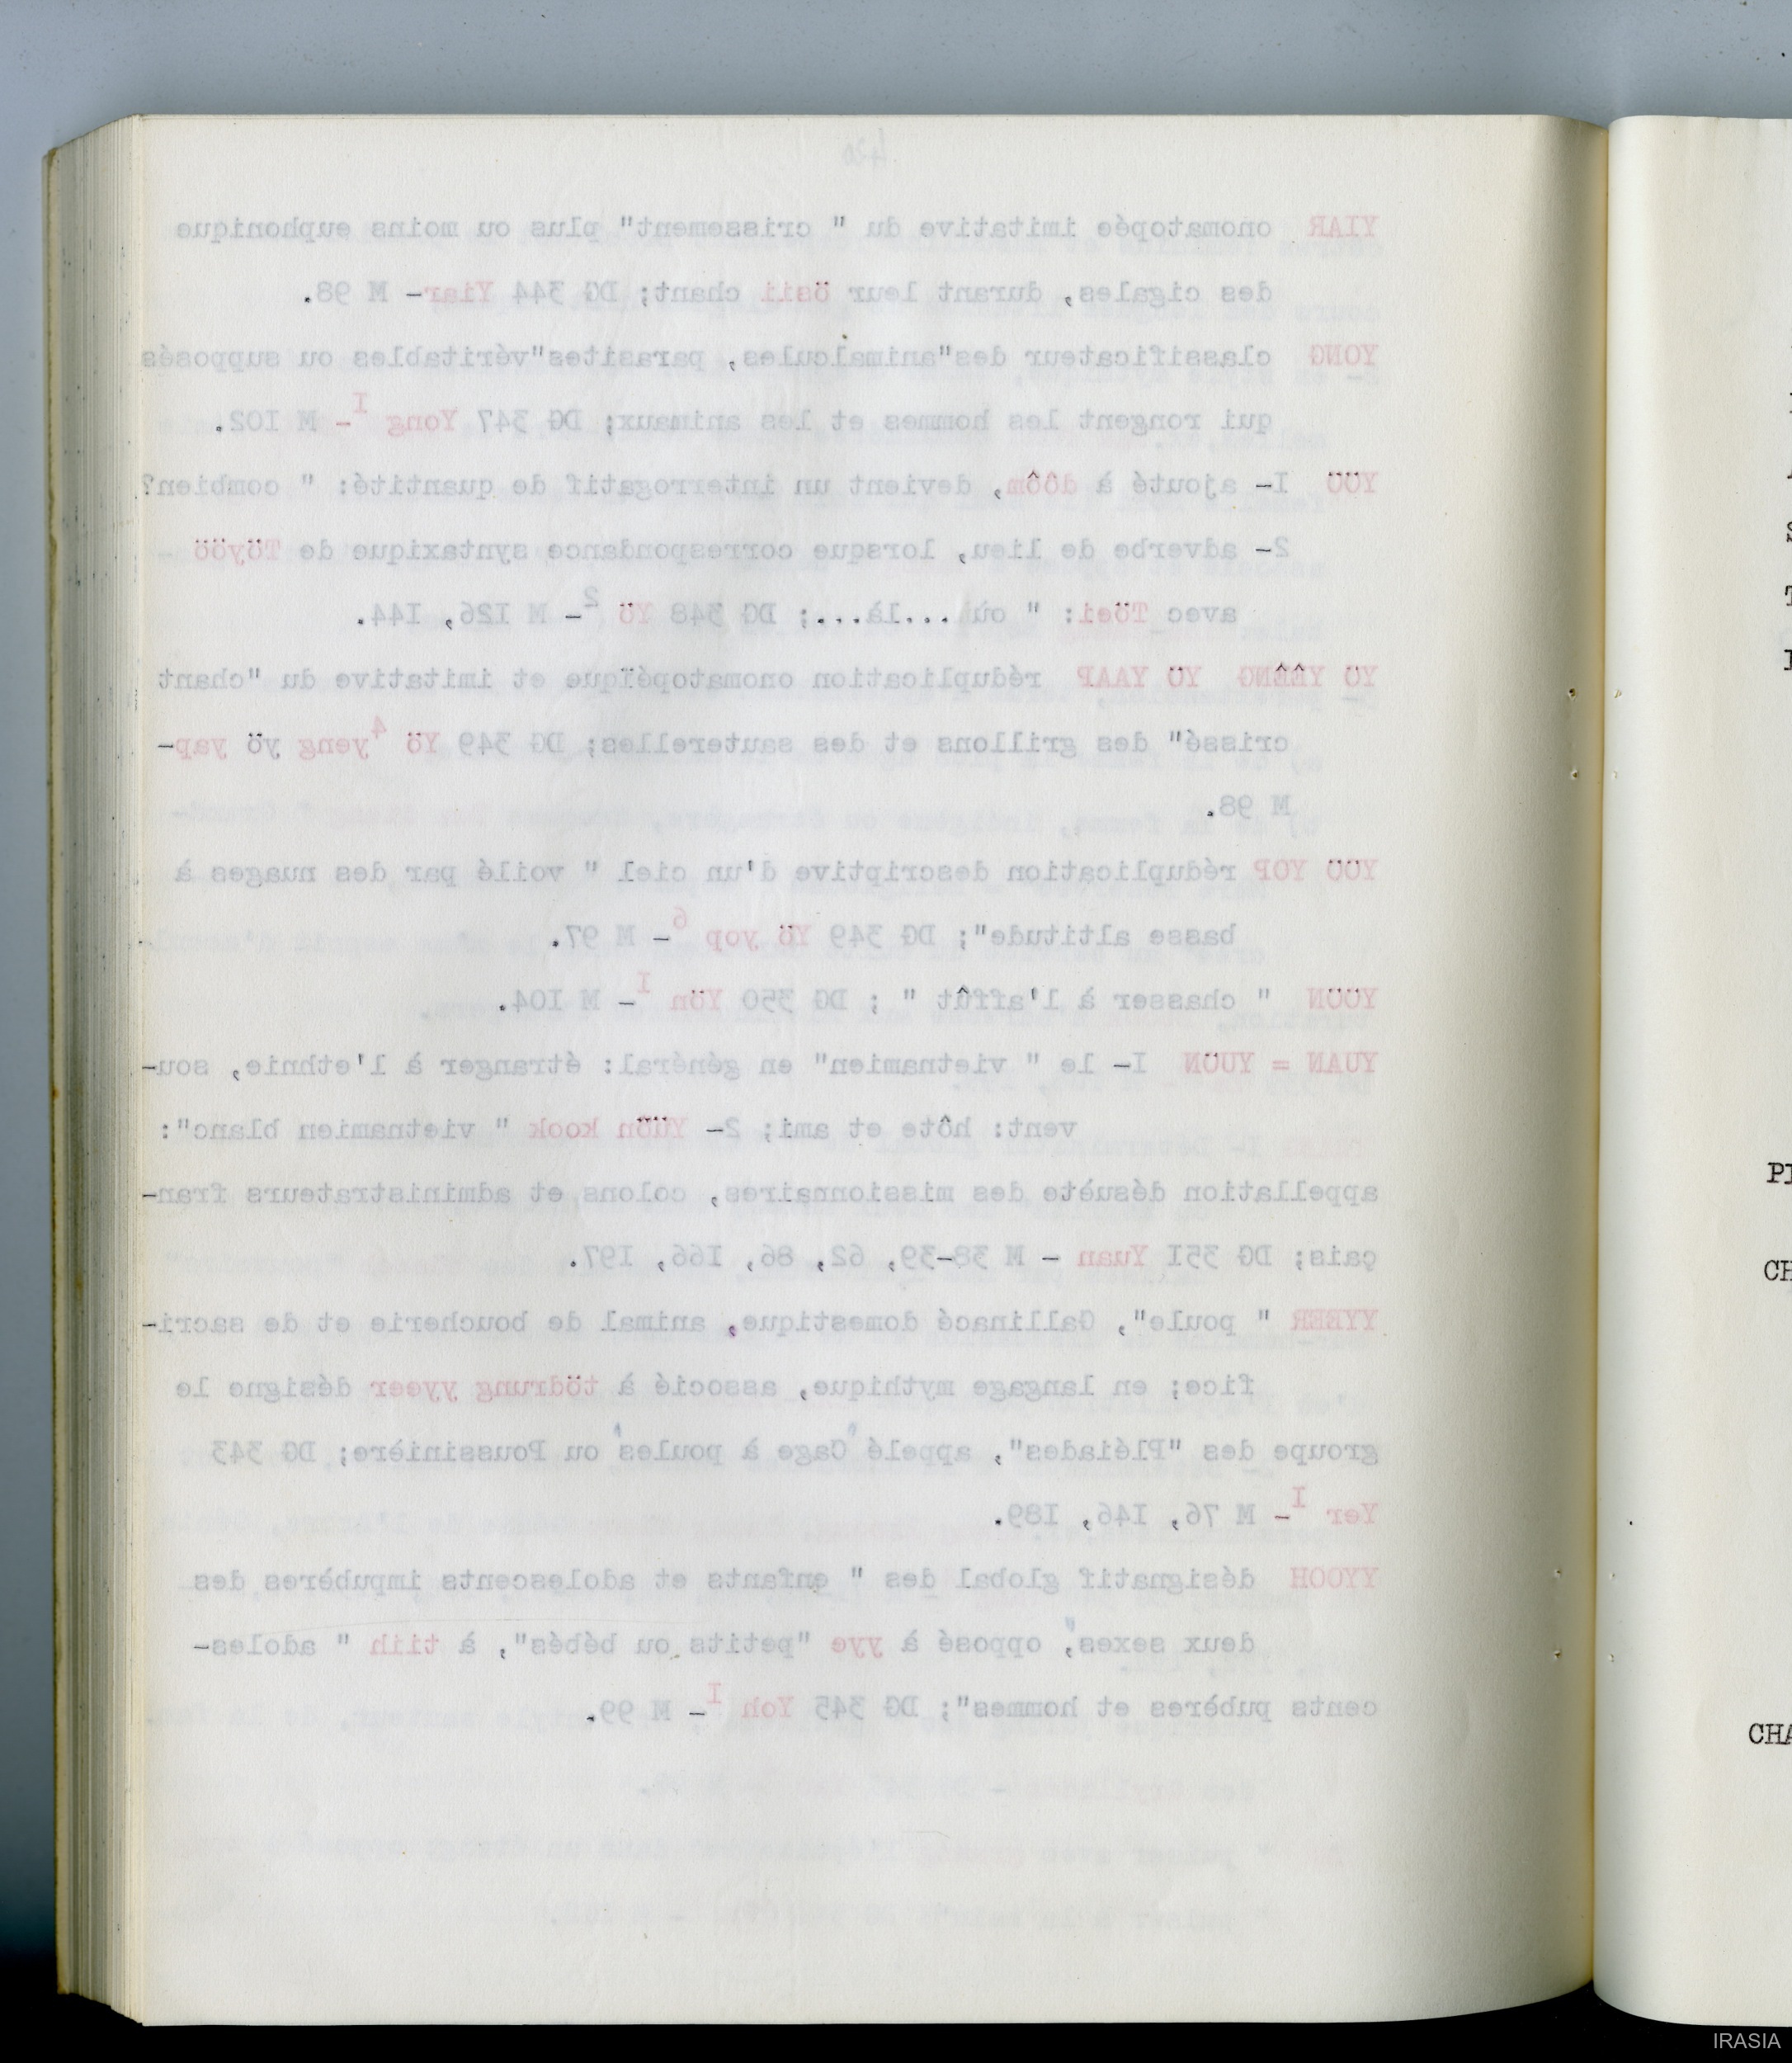 420
YIAR onomatopée imitative du " crissement" plus ou moins euphonique
des cigales, durant leur ösii chant; DG 344 Yiar- M 98.
YONG classificateur des"animalcules, parasites"véritables ou supposés
qui rongent les hommes et les animaux; DG 347 Yong I- M I02.
YÖÖ I- ajouté à dôôm, devient un interrogatif de quantité: " combien?
2- adverbe de lieu, lorsque correspondance syntaxique de Töyöö
avec Töei: " où ...là...; DG 348 Yö 2- M I26, I44.
YÖ YÊÊNG YÖ YAAP réduplication onomatopéïque et imitative du "chant
crissé" des grillons et des sauterelles; DG 349 Yö 4yeng yö yap-
M 98.
YÖÖ YOP réduplication descriptive d'un ciel " voilé par des nuages à
basse altitude"; DG 349 Yö yop 6- M 97.
YÖÖN " chasser à l'affût " ; DG 350 Yön I- M I04.
YUAN = YUÖN I- le " vietnamien" en général: étranger à l'ethnie, sou-
vent: hôte et ami; 2- Yüön kook " vietnamien blanc":
appellation désuète des missionnaires, colons et administrateurs fran-
çais; DG 35I Yuan - M 38-39, 62, 86, I66, I97.
YYEER " poule", Gallinacé domestique, animal de boucherie et de sacri-
fice; en langage mythique, associé à tödrung yyeer désigne le
groupe des "Pléiades", appelé "Cage à poules" ou Poussinière; DG 343
Yer I- M 76, I46, I89.
YYOOH désignatif global des " enfants et adolescents impubères des
deux sexes", opposé à yye "petits ou bébés", à tiih " adoles-
cents pubères et hommes"; DG 345 Yoh I- M 99.
PI
CH
CHA
IRASIA